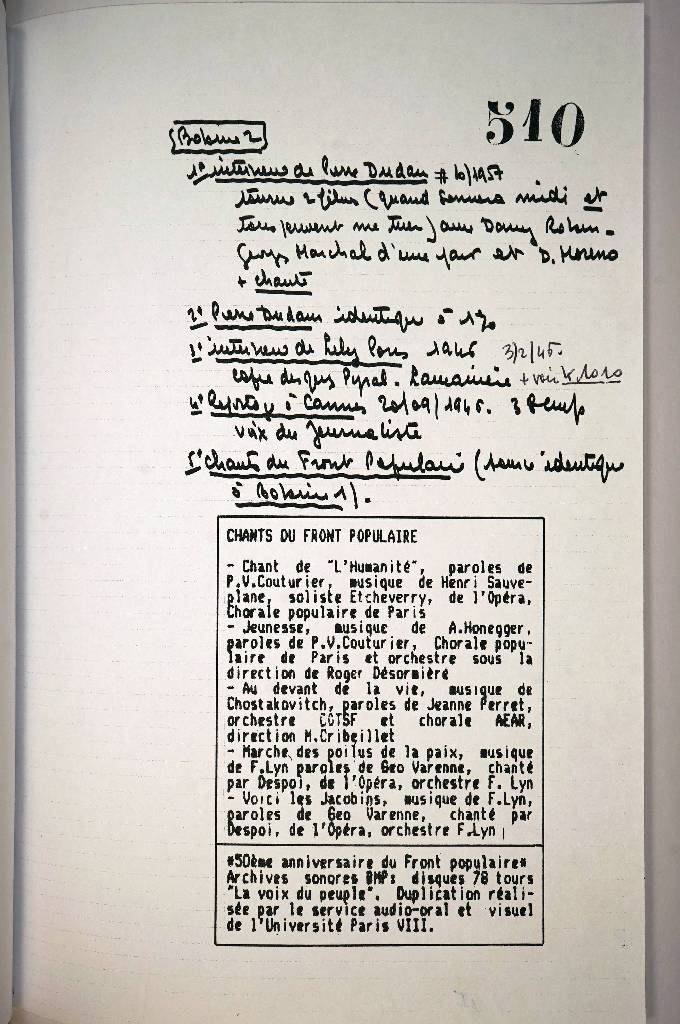 510
Bobine 2
1° interview de Pierre Dudan # 10/1957
tourne 2 films (quand sonnera midi et
tous peuvent me tuer) avec Dany Robin -
Georges Marchal d'une part et D. Moreno
+ chants
2° Pierre Dudan identique à 1°
3° interview de Lily Pons 1945 3/2/45.
copie disques Pyral. + voir
4° Reportage à Cannes 20/09/1946.
voix du journaliste
5° chants du Front Populaire (source identique
à Bobine 1).
CHANTS DU FRONT POPULAIRE
- Chant de "L'Humanité", paroles de
P.V.Couturier, musique de Henri Sauve-
plane, soliste Etcheverry, de l'Opéra,
Chorale populaire de Paris
- Jeunesse, musique de A.Honegger,
paroles de P.V.Couturier, Chorale popu-
laire de Paris et orchestre sous la
direction de Roger Désormière
- Au devant de la vie, musique de
Chostakovitch, paroles de Jeanne Perret,
orchestre CGTSF et chorale AEAR,
direction M.Cribeillet
- Marche des poilus de la paix, musique
de F.Lyn paroles de Geo Varenne, chanté
par Despoi, de l'Opéra, orchestre F. Lyn
- Voici les Jacobins, musique de F.Lyn,
paroles de Geo Varenne, chanté par
Despoi, de l'Opéra, orchestre F.Lyn
*50ème anniversaire du Front populaire*
Archives sonores BMP: disques 78 tours
"La voix du peuple". Duplication réali-
sée par le service audio-oral et visuel
de l'Université Paris VIII.